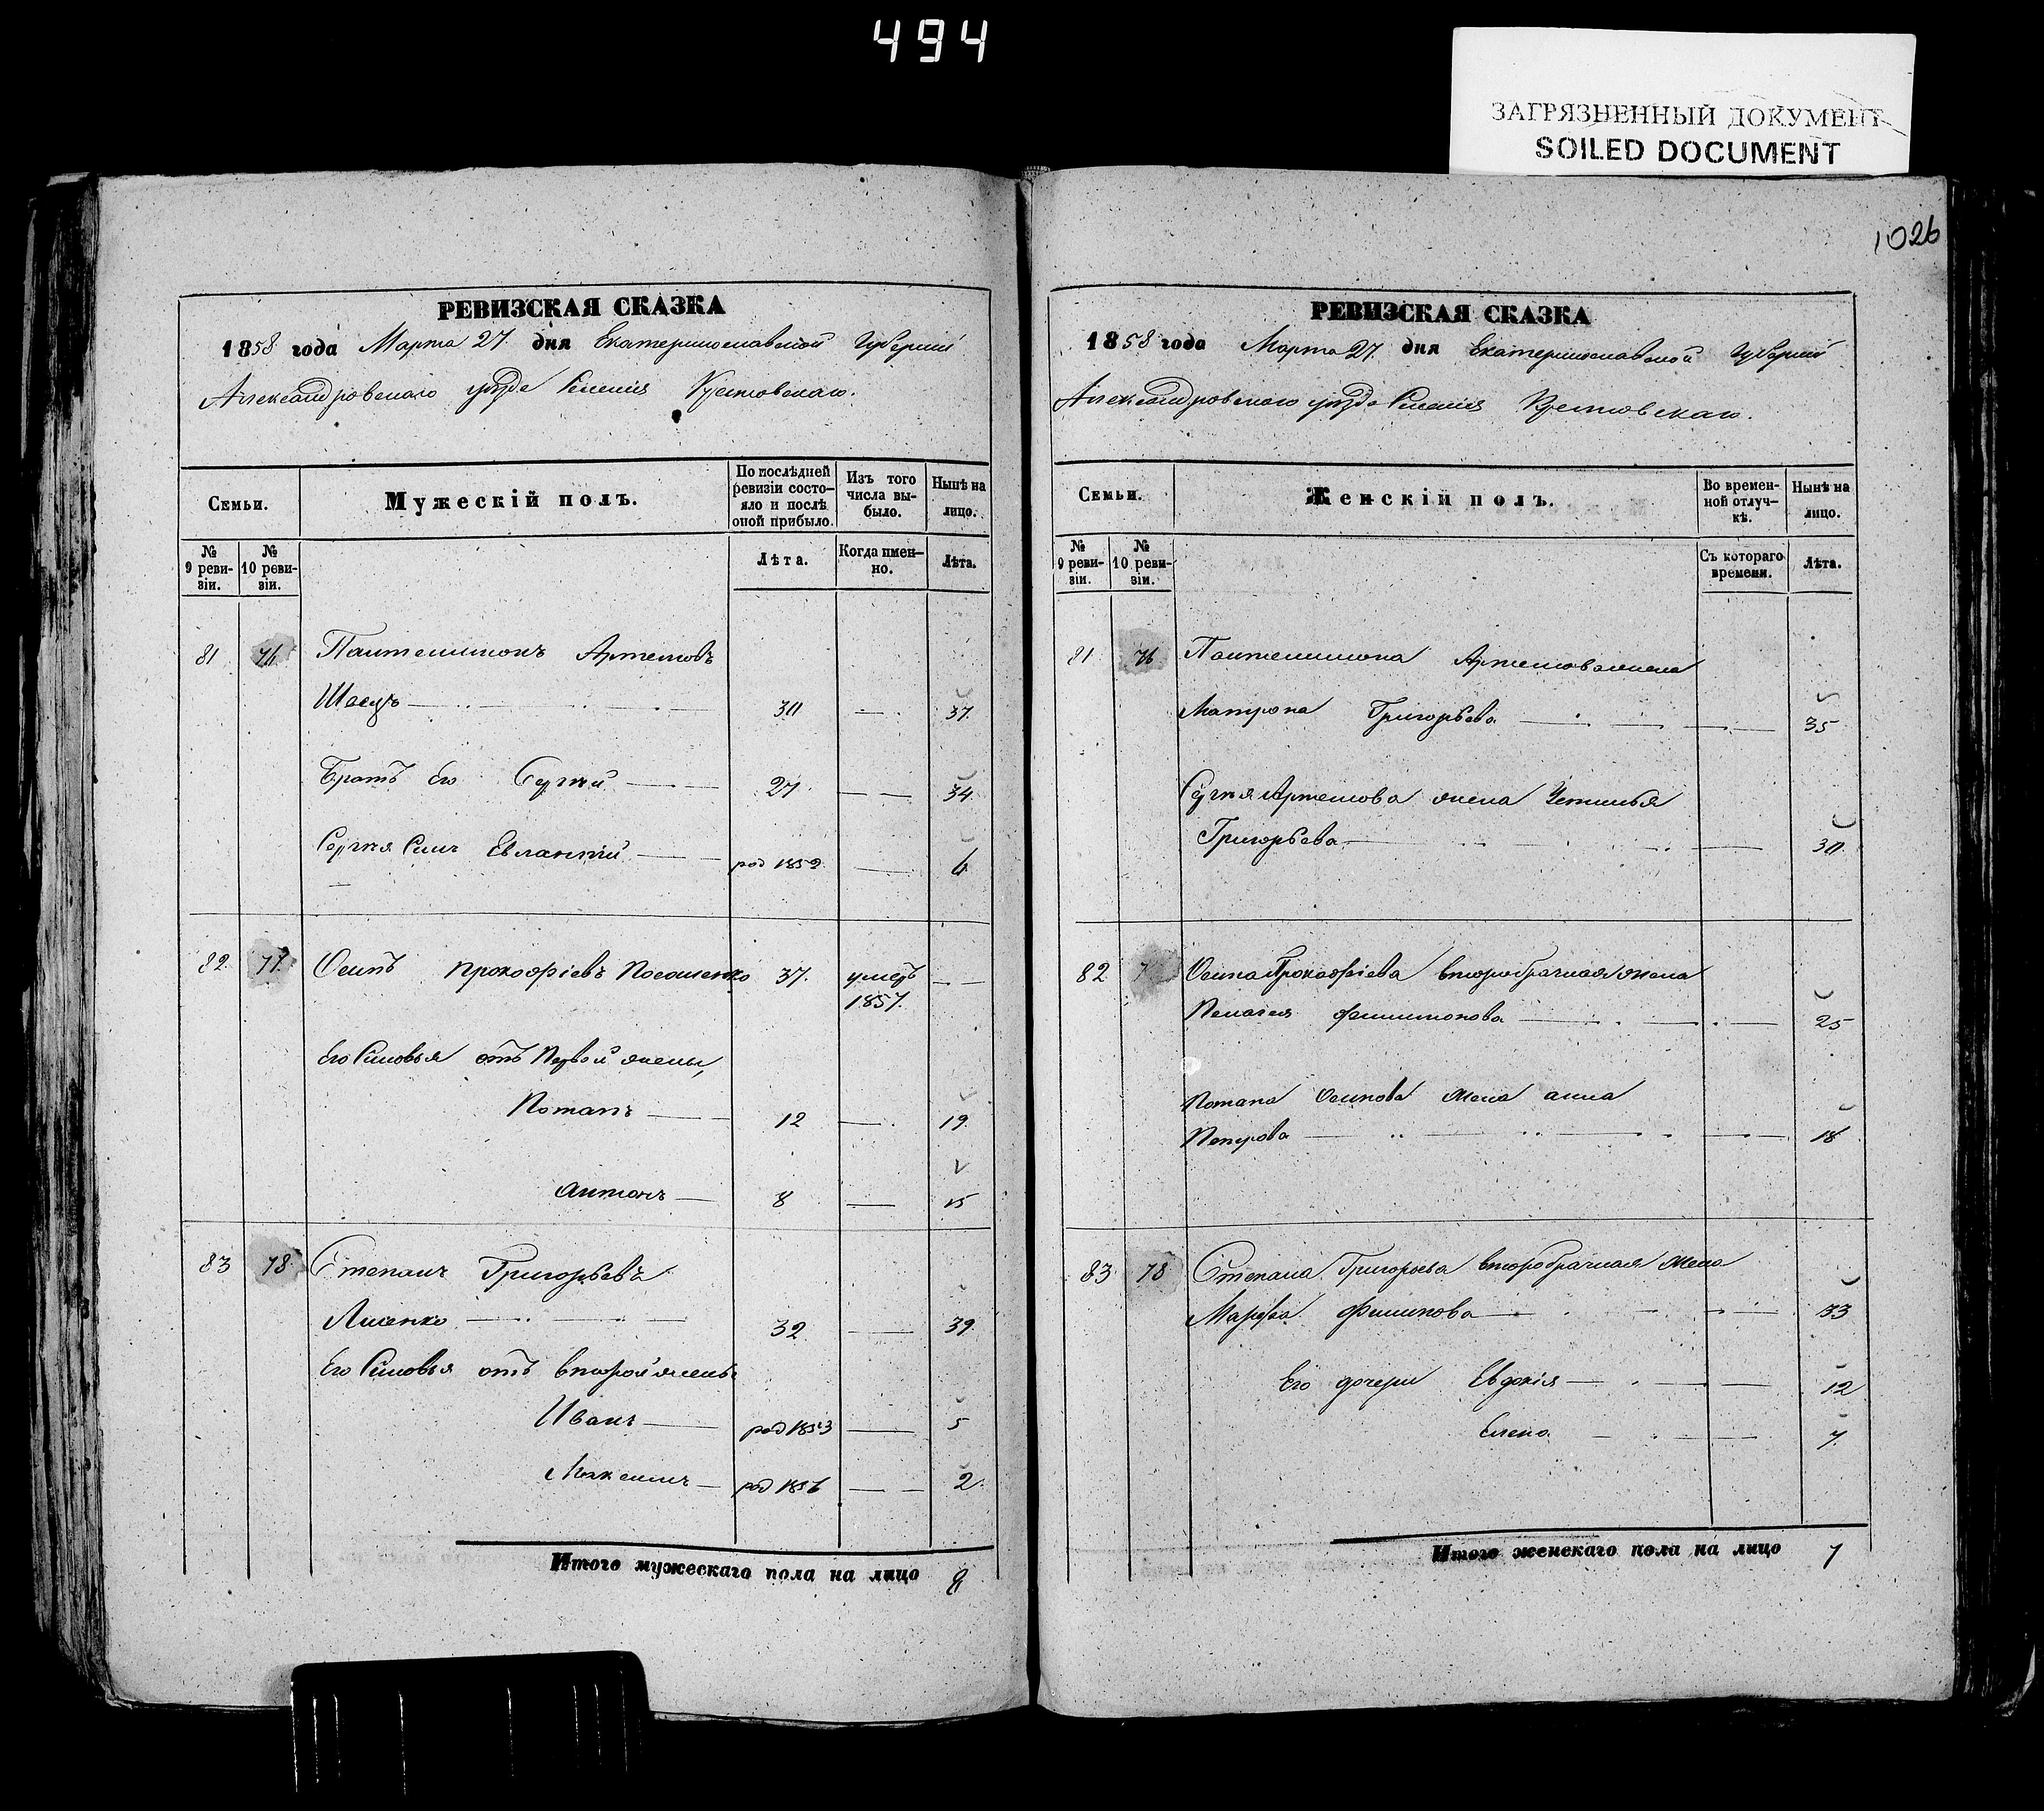 494
ЗАГРЯЗНЕННЫЙ ДОКУМЕНТ
SOILED DOCUMENT
1026
РЕВИЗСКАЯ СКАЗКА
1858 года Марта 27. дня Екатеринославской Губерніи
Александровскаго уѣзда Селенія
Семьи.
Мужескій полъ.
По послѣдней ревизіи состояло и послѣ оной прибыло.
Изъ того числа выбыло.
Нынѣ на лицо.
№ 9 ревизіи.
№ 10 ревизіи.
Лѣта.
Когда именно.
Лѣта.
81 76 Пантелимонъ Артемовъ
30 37.
Братъ Его Сергѣй 27 34.
Сергѣя Сынъ Евлампій род 1852 6.
82. 77. Осипъ Прокофіевъ 37. умеръ
1857.
Его Сыновья отъ Первой жены,
Потапъ 12 19.
Антонъ 8 15
83 78. Степанъ Григорьевъ
Лисенко 32 39.
Его Сыновья отъ второй жены
Иванъ род 1853 5
Максимъ род 1856 2.
Итого мужескаго пола на лицо 8
РЕВИЗСКАЯ СКАЗКА
1858 года Марта 27. дня Екатеринославской Губерніи
Александровскаго уѣзда Селенія
Семьи.
Женскій полъ.
Во временной отлучкѣ.
Нынѣ на лицо.
№ 9 ревизіи.
№ 10 ревизіи.
Съ котораго времени.
Лѣта.
81 76 Пантелимона Артемова жена
Матрона Григорьева 35
Сергѣя Артемова жена Устинья
Григорьева 30.
82 Осипа Прокофіева второбрачная жена
Пелагея Филимонова 25
Потапа Осипова жена анна
Петрова 18
83 78 Степана Григорьева второбрачная жена
Марфа Филипова 33
Его дочери Евдокія 12
Елена 7.
Итого женскаго пола на лицо 7